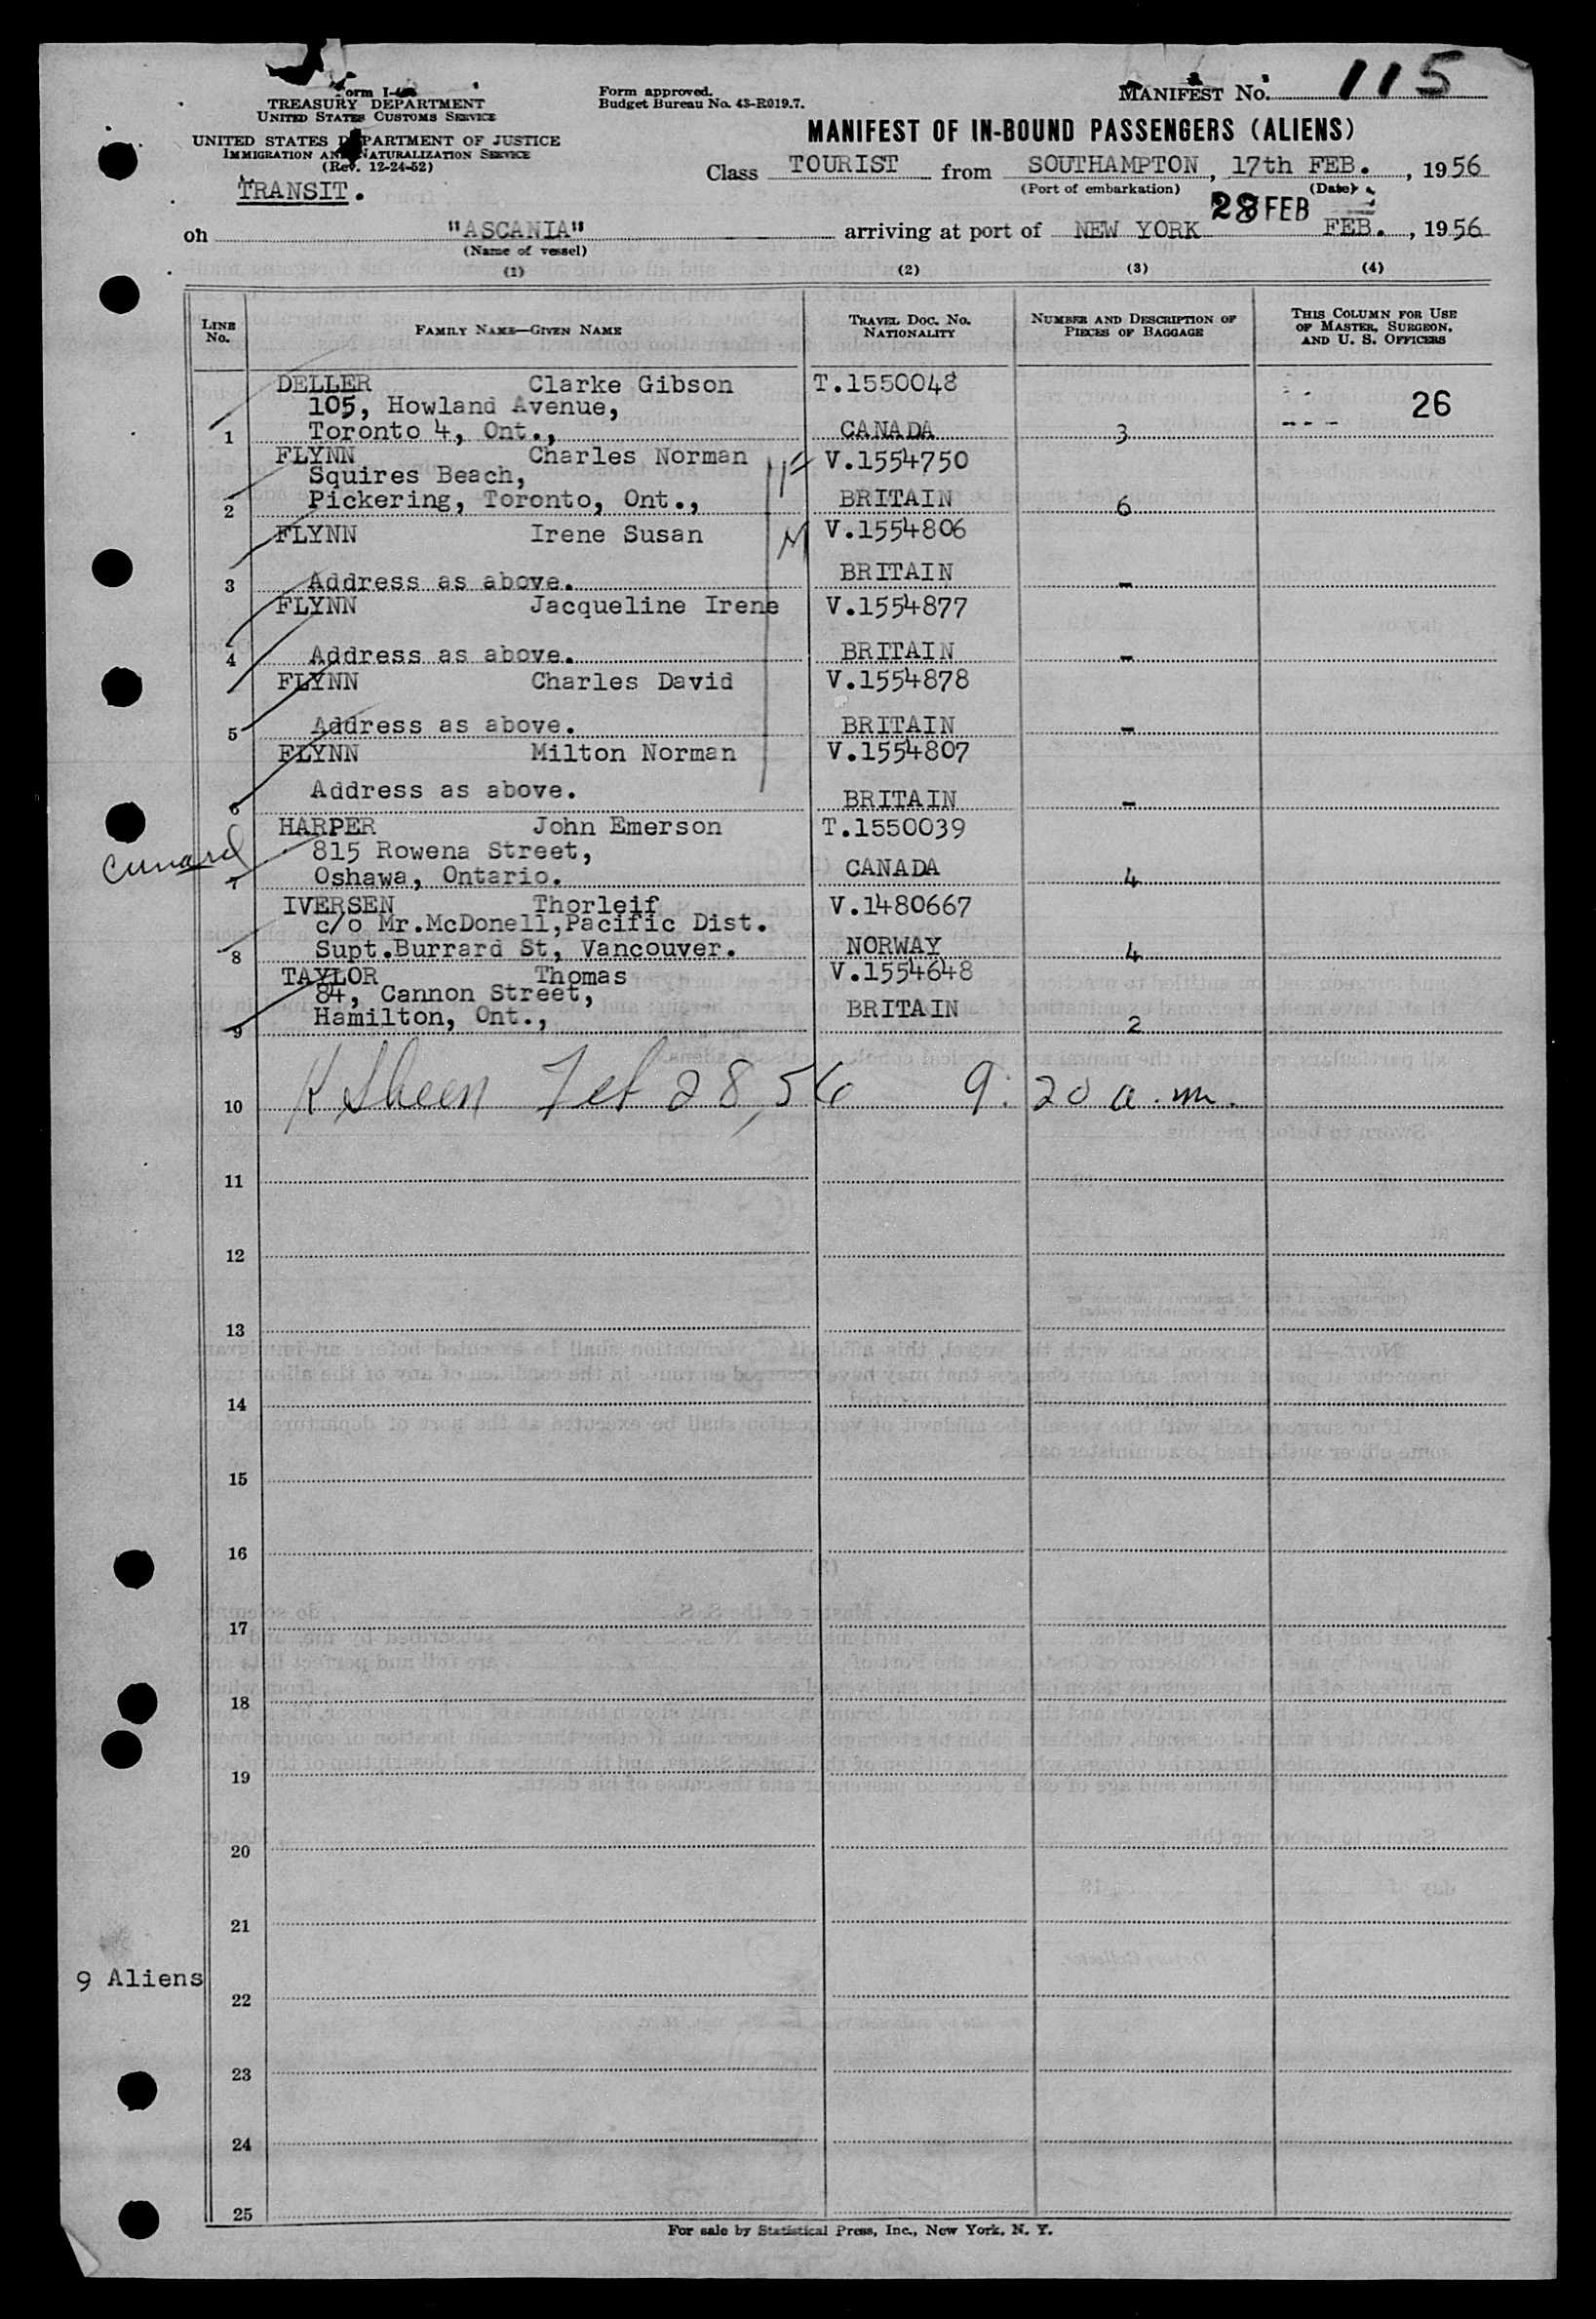 MANIFEST No. 115
TREASURY DEPARTMENT
UNITED STATES CUSTOMS SERVICE
Form approved.
Budget Bureau No. 43-R019.7.
UNITED STATES DEPARTMENT OF JUSTICE
IMMIGRATION AND NATURALIZATION SERVICE
(Rev. 12-24-52)
TRANSIT.
MANIFEST OF IN-BOUND PASSENGERS (ALIENS)
Class TOURIST from SOUTHAMPTON, 17th FEB., 1956
(Port of embarkation) (Date)
28 FEB
on "ASCANIA" arriving at port of NEW YORK FEB., 1956
(Name of vessel)
(1) (2) (3) (4)
LINE No. FAMILY NAME—GIVEN NAME TRAVEL DOC. NO. NATIONALITY NUMBER AND DESCRIPTION OF PIECES OF BAGGAGE THIS COLUMN FOR USE OF MASTER, SURGEON, AND U. S. OFFICERS
DELLER Clarke Gibson T.1550048
105, Howland Avenue, 26
1 Toronto 4, Ont., CANADA 3 ---
FLYNN Charles Norman V.1554750
Squires Beach,
2 Pickering, Toronto, Ont., BRITAIN 6
FLYNN Irene Susan V.1554806
3 Address as above. BRITAIN -
FLYNN Jacqueline Irene V.1554877
4 Address as above. BRITAIN -
FLYNN Charles David V.1554878
5 Address as above. BRITAIN -
FLYNN Milton Norman V.1554807
6 Address as above. BRITAIN -
HARPER John Emerson T.1550039
Cunard 815 Rowena Street,
7 Oshawa, Ontario. CANADA 4
IVERSEN Thorleif V.1480667
c/o Mr.McDonell,Pacific Dist.
8 Supt.Burrard St, Vancouver. NORWAY 4
TAYLOR Thomas V.1554648
84, Cannon Street,
9 Hamilton, Ont., BRITAIN 2
10 K Sheen Feb 28, 56 9:20 a.m.
11
12
13
14
15
16
17
18
19
20
21
9 Aliens
22
23
24
25
For sale by Statistical Press, Inc., New York, N. Y.